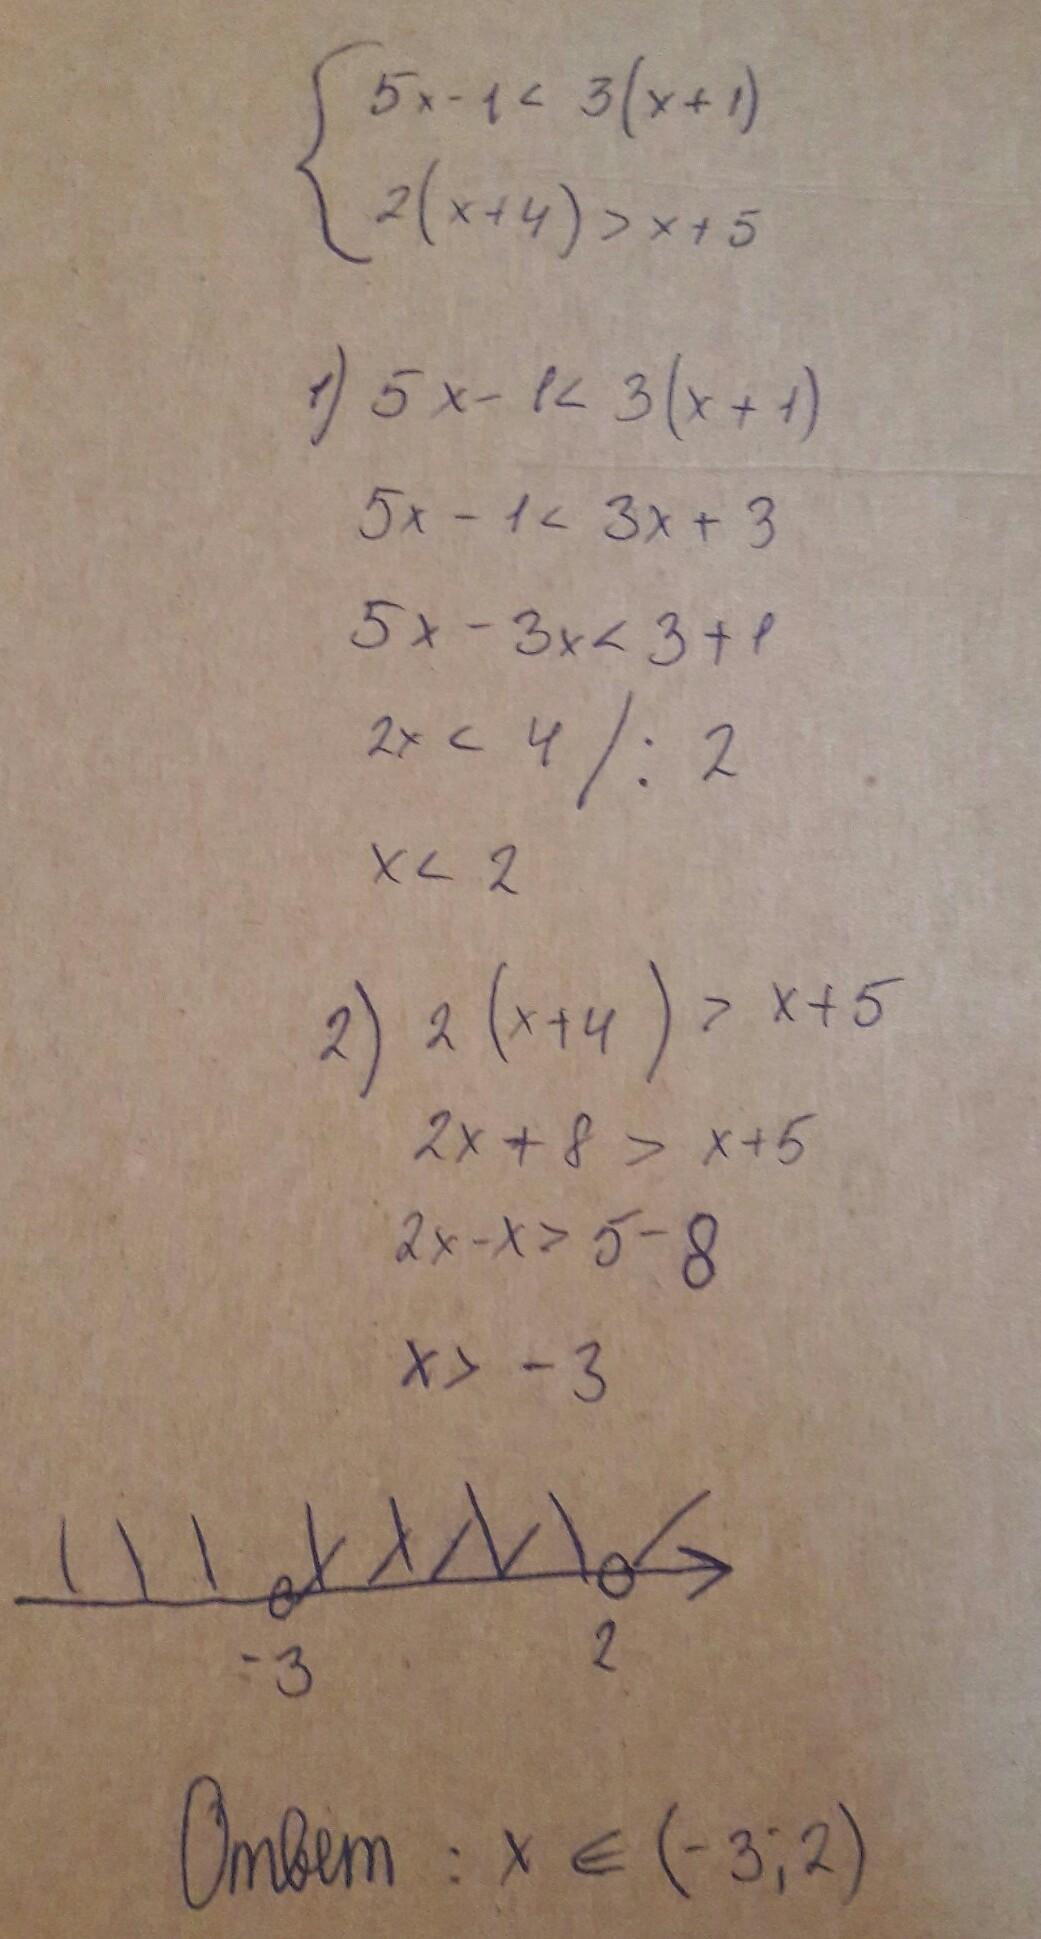 { 5x-1 < 3(x+1)
2(x+4) > x+5
1) 5x-1 < 3(x+1)
5x-1 < 3x+3
5x-3x < 3+1
2x < 4 /: 2
x < 2
2) 2(x+4) > x+5
2x+8 > x+5
2x-x > 5-8
x > -3
-3 2
Ответ: x ∈ (-3;2)